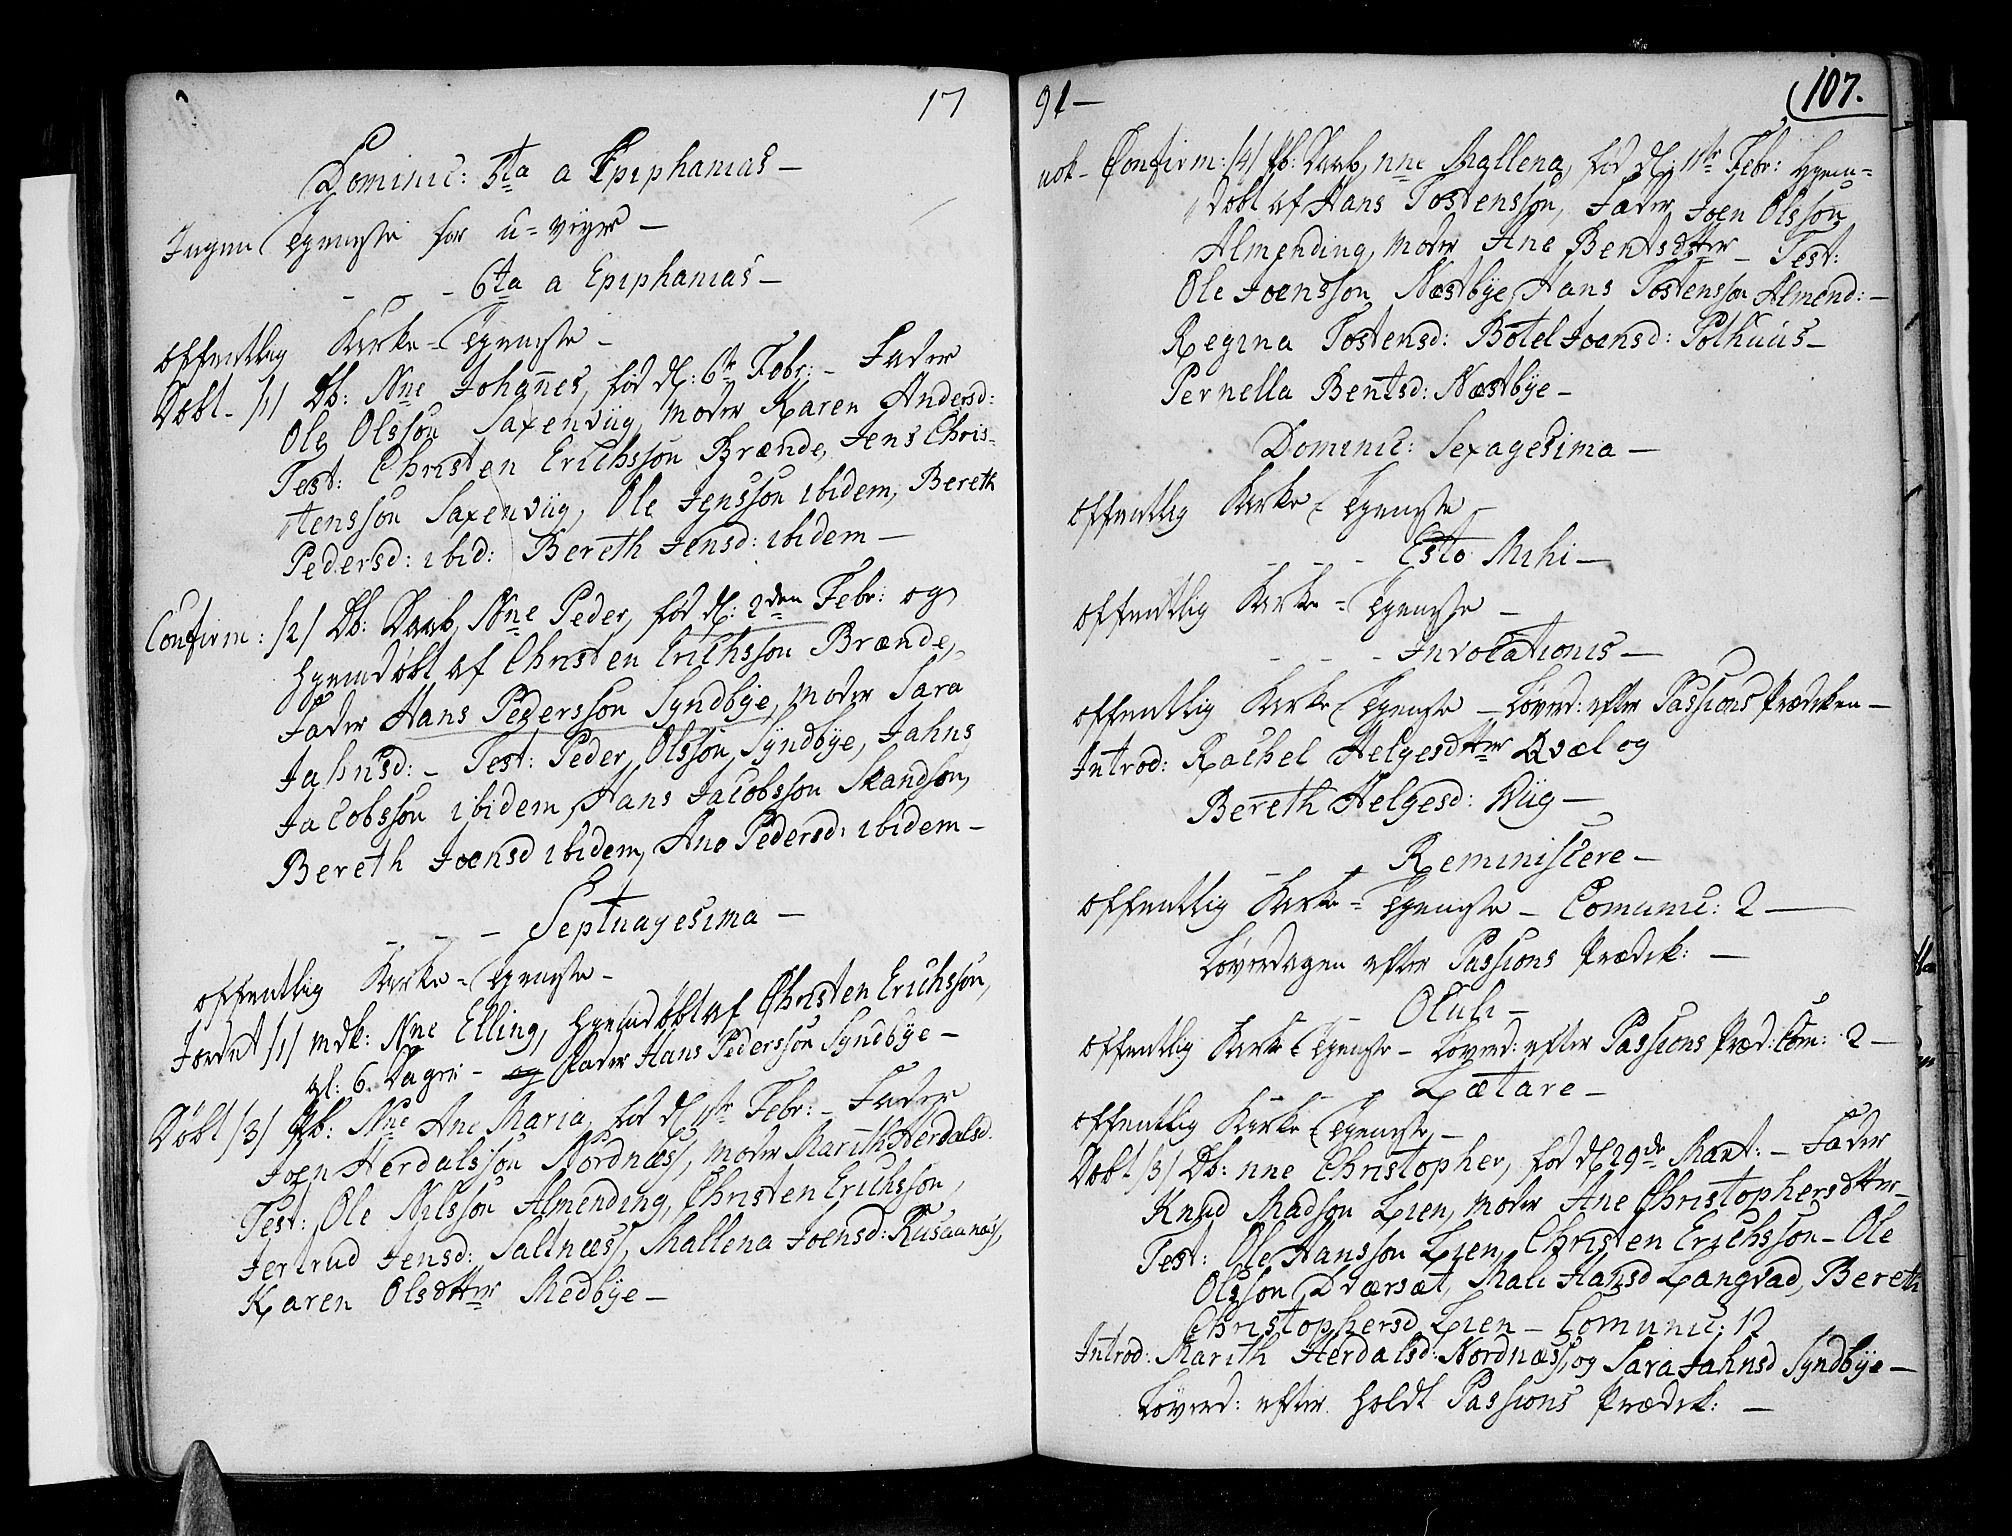 17
Dominic: 5ta a Epiphanias —
Ingen Tieneste for u-veyer —
- - - 6ta a Epiphanias —
offentlig Kirke-Tieneste —
Døbt - /1/ Db: Nne Johannes, fød d: 6te Febr: - Fader
Ole Olsson Saxenviig, Moder Karen Andersd:
Test: Christen Erichsson Brænde, Jens Chris-
tensson Saxenviig, Ole Jensson ibidem, Bereth
Pedersd: ibid: Bereth Jensd: ibidem —
Confirm: /2/ Db: Daab, Nne Peder, fød d: 2den Febr: og
hjemdøbt af Christen Erichsson Brænde,
Fader Hans Pedersson Syndbye, Moder Sara
Jahnsd: - Test: Peder Olsson Syndbye, Jahns
Jacobsson ibidem, Hans Jacobsson Skandson,
Bereth Joensd ibidem, Ane Pedersd: ibidem —
- - - Septuagesima —
offentlig Kirke-Tieneste —
Jordet /1/ Mdk: Nne Elling, hjemdøbt af Christen Erichsson,
gl: 6. Dager - og Fader Hans Pedersson Syndbye —
Døbt /3/ Pb: Nne Ane Maria, fød d 1ste Febr: - Fader
Joen Herdalsson Nordnæss, Moder Marith Herdalsd.
Test: Ole Nilsson Almending, Christen Erichsson,
Jertrud Jensd: Saltnæss, Mallena Joensd: Rusaanæss,
Karen Olsdtter Medbye —
91 —
107.
nok - Confirm: /4/ Pb: Daab, nne Mallena, fød d: 11te Febr: hjem-
døbt af Hans Tostensson, Fader Joen Olsson
Almending, Moder Ane Bentsdtter - Test:
Ole Joensson Næstbye, Hans Tostensson Almend: -
Regina Tostensd: Botel Joensd: Polhuus -
Pernella Bentsd: Næstbye -
Dominic: Sexagesima —
offentlig Kirke Tieneste —
- - - Esto Mihi —
offentlig Kirke-Tieneste —
- - - Invocationis —
offentlig Kirke Tieneste — Løverd: efter Passions Prædiken —
Introd: Rachel Helgesdtter Qvæl og
Bereth Helgesd: Viig —
- - - Reminiscere —
offentlig Kirke-Tieneste — Comunic: 2 —
Løverdagen efter Passions Prædik: —
- - - Oculi —
offentlig Kirke Tieneste — Løverd: efter Passions Præd: Com: 2 —
- - - Lætare —
offentlig Kirke Tieneste, —
Døbt /3/ Db: nne Christopher, fød d 29de Mart: - Fader
Knud Madson Lien, Moder Ane Christophersdtter -
Test: Ole Hansson Lien, Christen Erichsson - Ole
Olsson Dværsæt, Mali Hansd Langvad, Bereth
Christophersd Lien — Comunic: 12
Introd: Marith Herdalsd: Nordnæss, og Sara Jahnsd Syndbye —
Løverd: efter holdt Passions Prædik: —